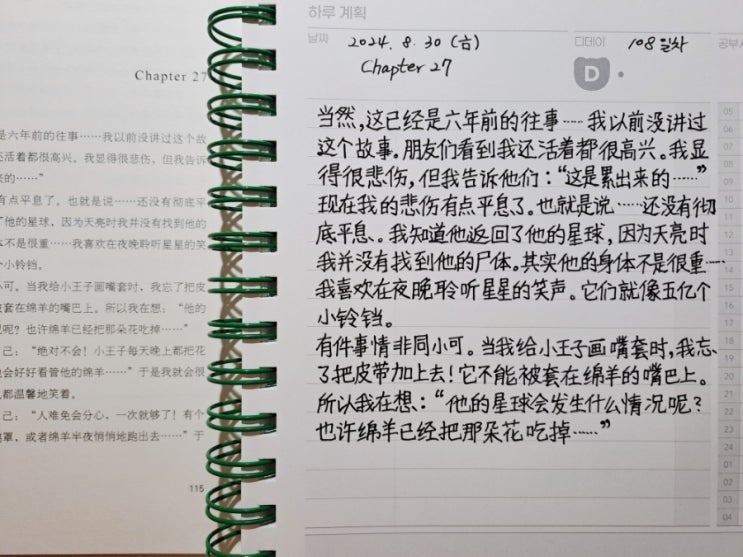 Chapter 27
是六年前的往事……我以前没讲过这个故
还活着都很高兴。我显得很悲伤，但我告诉
来的……”
有点平息了。也就是说……还没有彻底平
了他的星球，因为天亮时我并没有找到他的
体不是很重……我喜欢在夜晚聆听星星的笑
个小铃铛。
小可。当我给小王子画嘴套时，我忘了把皮
被套在绵羊的嘴巴上。所以我在想：“他的
况呢？也许绵羊已经把那朵花吃掉……”
己：“绝对不会！小王子每天晚上都把花
也会好好看管他的绵羊……”于是我就会很
都温馨地笑着。
己：“人难免会分心，一次就够了！有个
罩，或者绵羊半夜悄悄地跑出去……”于
115
하루 계획
날짜 2024. 8. 30 (금) 디데이 108일차 공부시
Chapter 27
D
当然,这已经是六年前的往事……我以前没讲过
这个故事。朋友们看到我还活着都很高兴。我显
得很悲伤,但我告诉他们：“这是累出来的……”
现在我的悲伤有点平息了。也就是说……还没有彻
底平息、。我知道他返回了他的星球,因为天亮时
我并没有找到他的尸体。其实他的身体不是很重……
我喜欢在夜晚聆听星星的笑声。它们就像五亿个
小铃铛。
有件事情非同小可。当我给小王子画嘴套时,我忘
了把皮带加上去！它不能被套在绵羊的嘴巴上。
所以我在想、：“他的星球会发生什么情况呢？
也许绵羊已经把那朵花吃掉……”
05
06
07
08
09
10
11
12
13
14
15
16
17
18
19
20
21
22
23
24
01
02
03
04